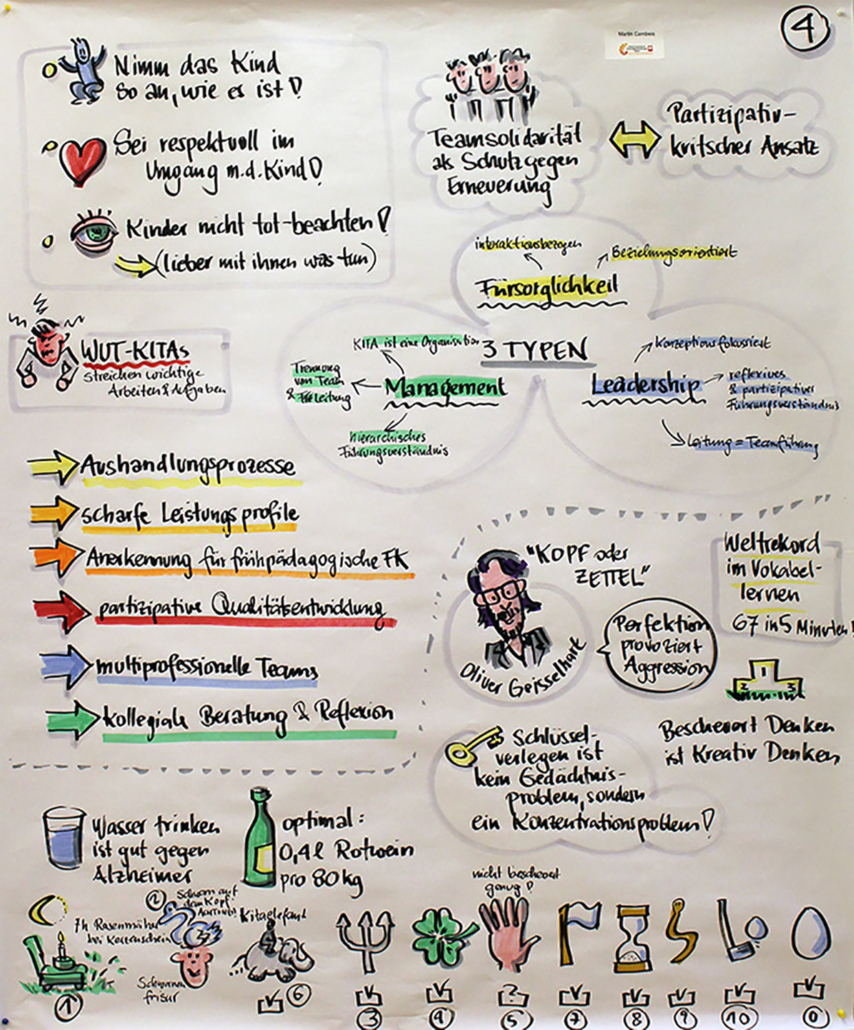 4
Martin Cambeis
Nimm das Kind
so an, wie es ist!
Sei respektvoll im
Umgang m.d. Kind!
Kinder nicht tot-beachten!
(lieber mit ihnen was tun)
Teamsolidarität
als Schutz gegen
Erneuerung
Partizipativ-
kritscher Ansatz
WUT-KITAs
Streichen wichtige
Arbeiten & Aufgaben
3 TYPEN
interaktionsbezogen
Beziehungsorientiert
Fürsorglichkeit
KITA ist eine Organisation
Trennung
von Team
& Leitung
Management
hierarchisches
Führungsverständnis
Konzeptionsfokussiert
Leadership
reflexives
& partizipatives
Führungsverständnis
Leitung = Teamführung
Aushandlungsprozesse
scharfe Leistungsprofile
Anerkennung für frühpädagogische FK
partizipative Qualitätsentwicklung
multiprofessionelle Teams
kollegiale Beratung & Reflexion
"KOPF oder
ZETTEL"
Oliver Geisselhart
Perfektion
provoziert
Aggression
Weltrekord
im Vokabel-
lernen
67 in 5 Minuten!
1
2
3
Bescheuert Denken
ist Kreativ Denken
Schlüssel-
verlegen ist
kein Gedächtnis-
problem, sondern
ein Konzentrationsproblem!
Wasser trinken
ist gut gegen
Alzheimer
optimal:
0,4l Rotwein
pro 80kg
7h Rasenmäher
bei Kerzenschein
1
2
Schwan auf
dem Kopf
Schwanen
frisur
Kitaelefant
6
3
4
nicht bescheuert
genug!
?
5
7
8
9
10
0